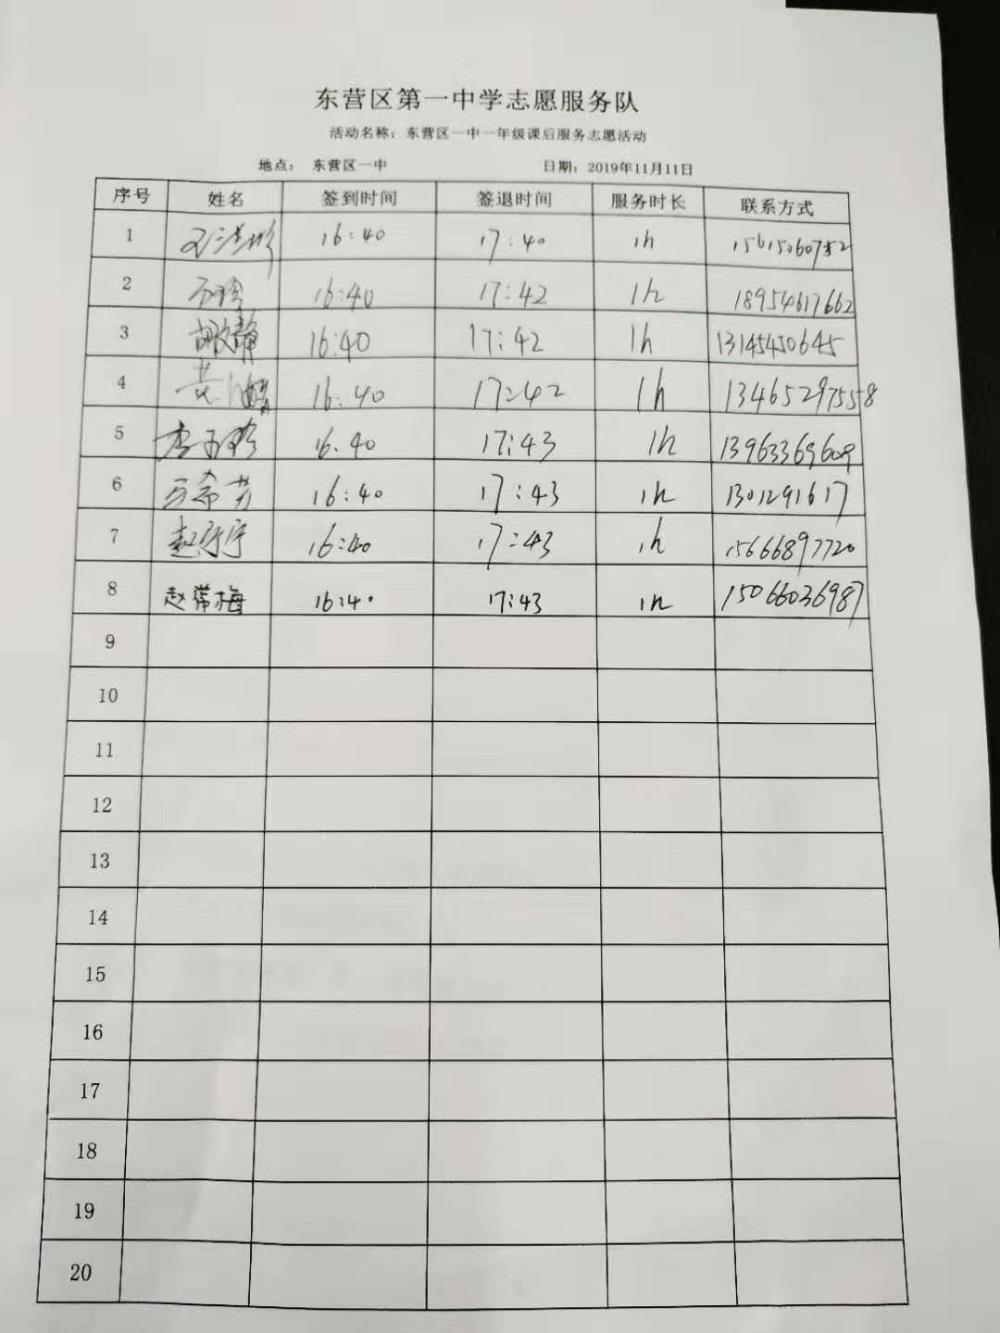 东营区第一中学志愿服务队
活动名称：东营区一中一年级课后服务志愿活动
地点： 东营区一中 日期：2019年11月11日
序号 姓名 签到时间 签退时间 服务时长 联系方式
1 16:40 17:40 1h 15615060752
2 16:40 17:42 1h 18954617662
3 胡文静 16:40 17:42 1h 13145450645
4 黄 16:40 17:42 1h 13465297558
5 李玉珍 16.40 17:43 1h 13963369609
6 万希芳 16:40 17:43 1h 1301291617
7 赵 16:40 17:43 1h 15666897720
8 赵常梅 16:40 17:43 1h 15066036987
9
10
11
12
13
14
15
16
17
18
19
20